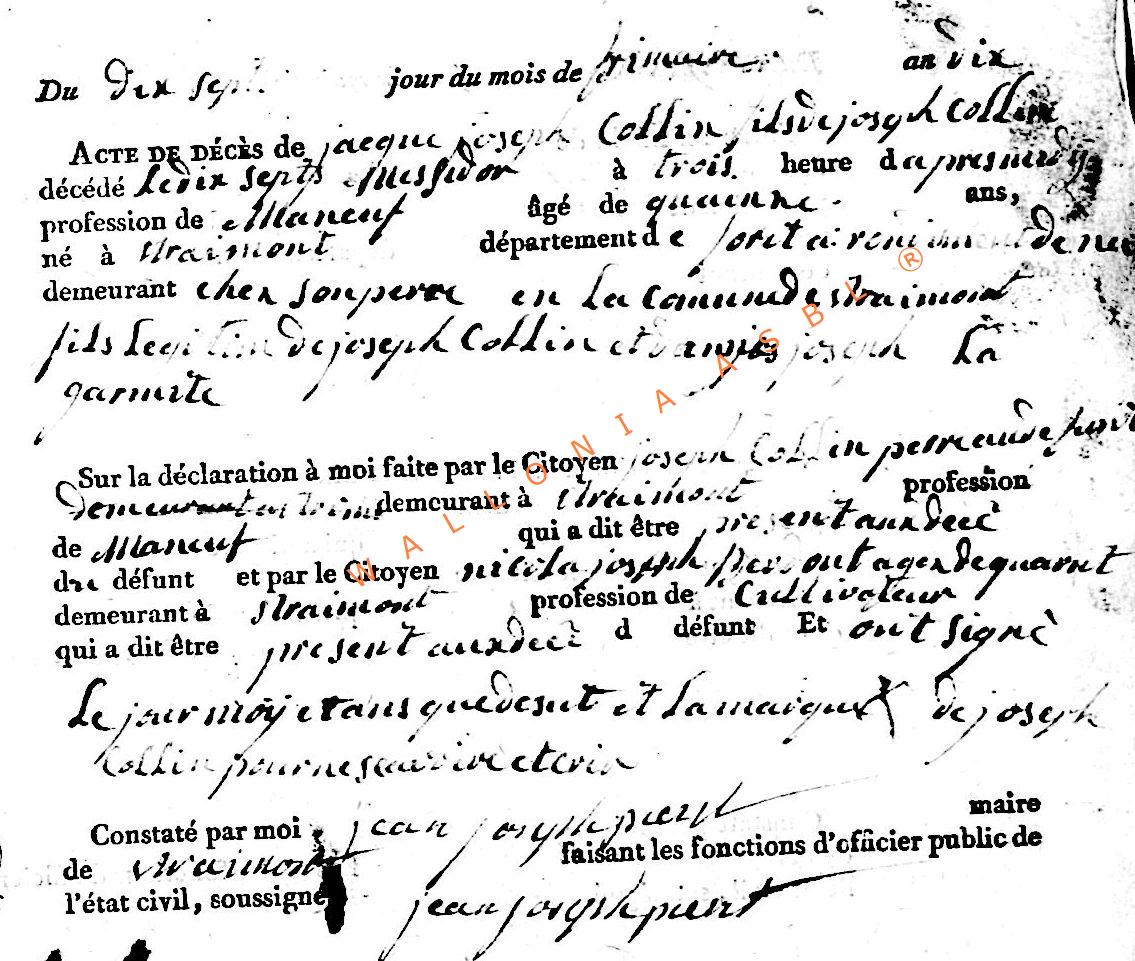 Du dix sept jour du mois de frimaire an dix
ACTE DE DÉCÈS de jacque joseph Collin fils de joseph Collin
décédé le dix septs Messidor à trois heure d apres
profession de Maneuf âgé de ans,
né à Straimont département d e foret de
demeurant chez son perre en la Comune de straimont
fils legitim de joseph Collin et joseph La
garmite
Sur la déclaration à moi faite par le Citoyen joseph Collin perre
demeurant demeurant à straimont profession
de Maneuf qui a dit être present aux decè
du défunt et par le Citoyen nicola joseph agez de quarent
demeurant à straimont profession de Cultivateur
qui a dit être present aux decè d défunt Et ont signè
Le jour moy et ans que desut et La marque X de joseph
Collin pour ne scavoire
Constaté par moi jean joseph maire
de straimont faisant les fonctions d'officier public de
l'état civil, soussigné jean joseph
WALLONIA ASBL ®